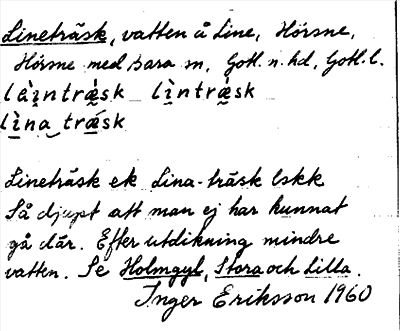 Lineträsk, vatten å Line, Hörsne,
Hörsne med Bara sn, Gotl. n. hd, Gotl. l.
làintrǽsk lìntrǽsk
lìna trǽsk
Lineträsk ek Lina-träsk lskk
Så djupt att man ej har kunnat
gå där. Efter utdikning mindre
vatten. Se Holmgyl, Stora och Lilla.
Inger Eriksson 1960